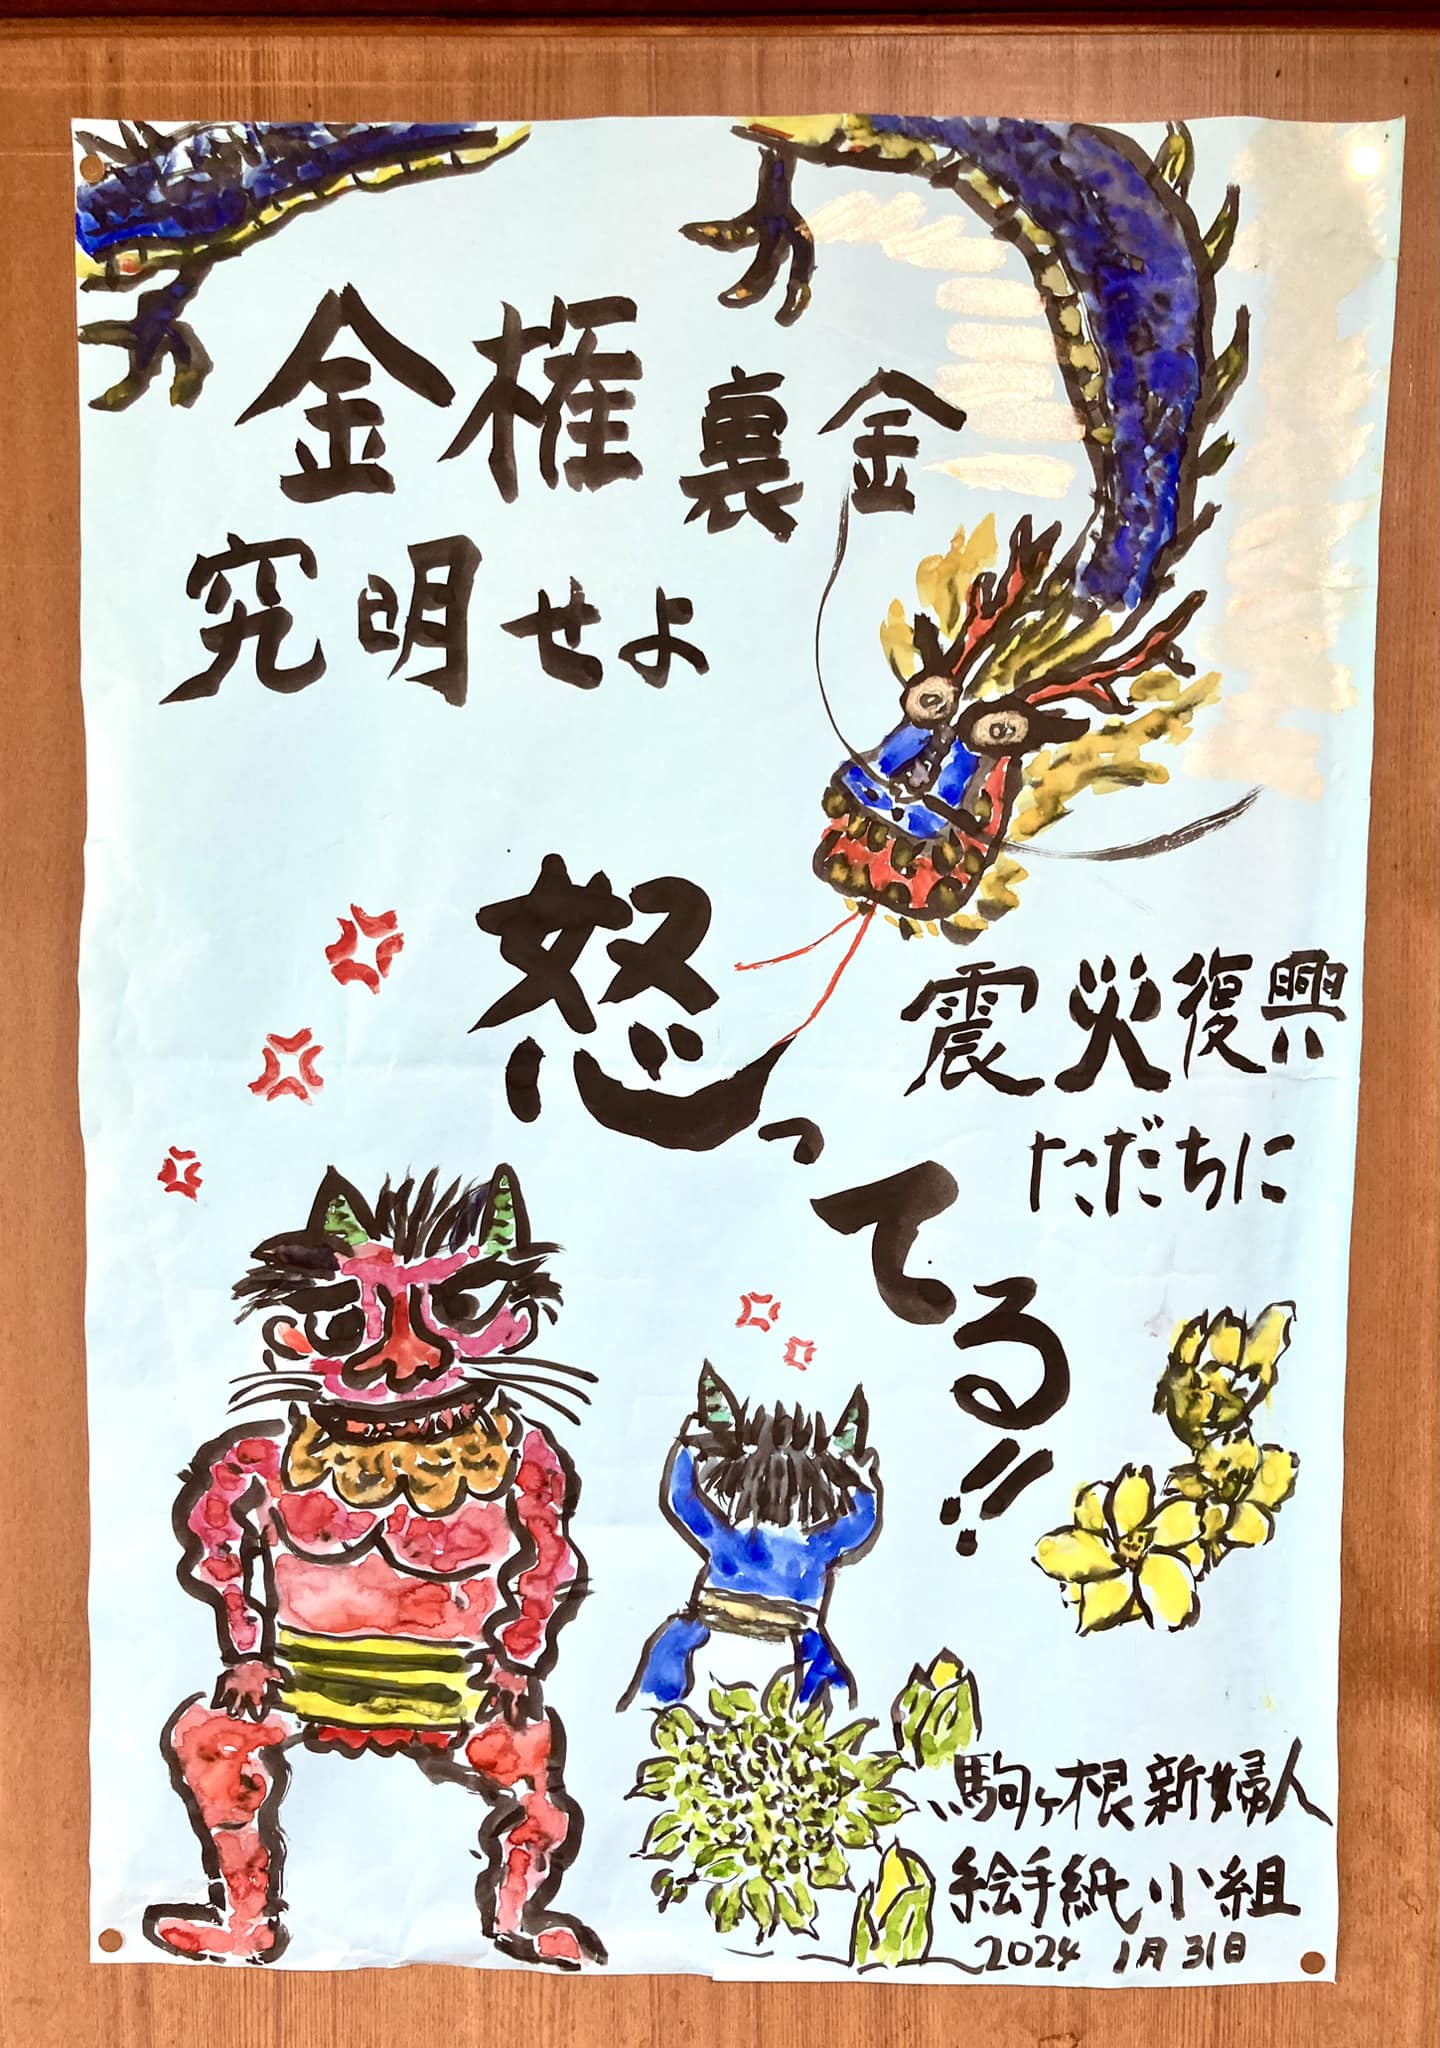 金権裏金
究明せよ
怒ってる!!
震災復興
ただちに
駒ヶ根新婦人
絵手紙小組
2024 1月31日